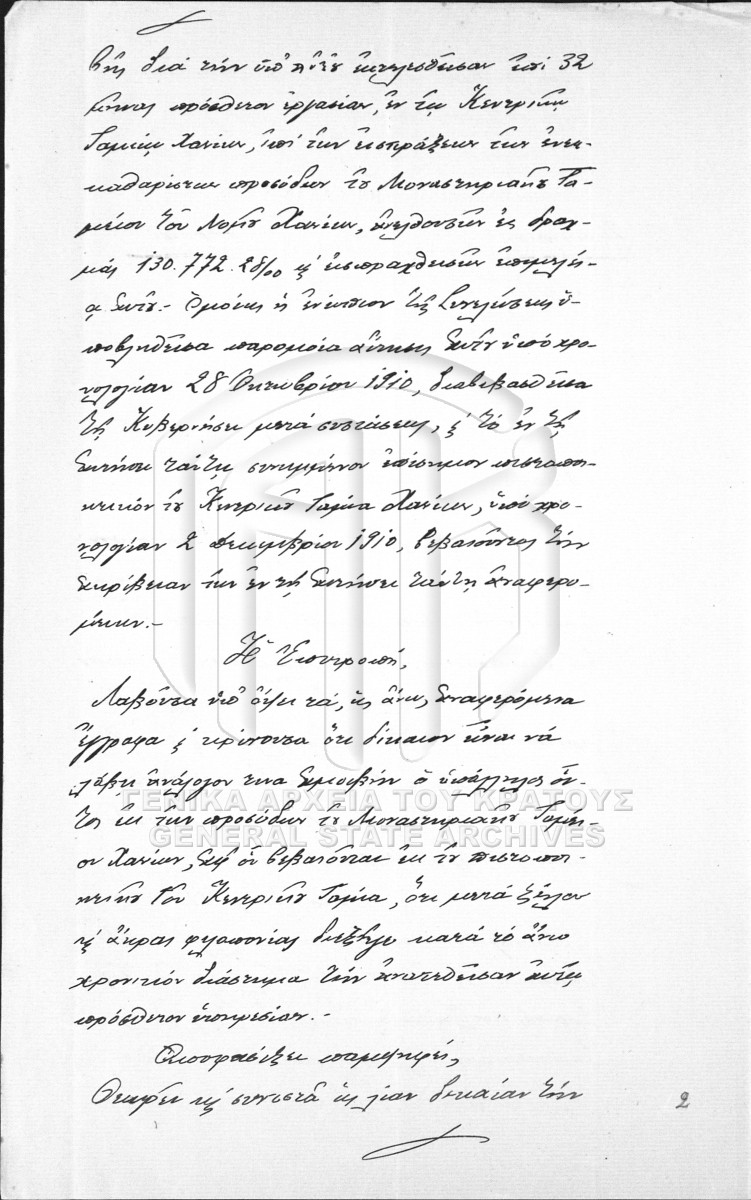 βῆς διά τήν ὑπ' αὐτοῦ ἐκτελεσθεῖσαν ἐπί 32
μῆνας πρόσθετον ἐργασίαν, ἐν τῷ Κεντρικῷ
Ταμείῳ Χανίων, ἐπί τῶν εἰσπράξεων τῶν ἐνεκ-
καθαρίστων προσόδων τοῦ Μοναστηριακοῦ Τα-
μείου τοῦ Νομοῦ Χανίων, ἀνελθουσῶν εἰς δραχ-
μάς 130.772.28/00 καί εἰσπραχθεισῶν ἐπιμελεί-
ᾳ αὐτοῦ.- Ὁμοίως ἡ ἐνώπιον τῆς Συνελεύσεως ὑ-
ποβληθεῖσα παρομοία αἴτησις αὐτοῦ ὑπό χρο-
νολογίαν 28 Ὀκτωβρίου 1910, διαβιβασθεῖσα
τῇ Κυβερνήσει μετά συστάσεως, καί τό ἐν τῇ
αἰτήσει ταύτῃ συνημμένον ἐπίσημον πιστοποι-
ητικόν τοῦ Κεντρικοῦ Ταμία Χανίων, ὑπό χρο-
νολογίαν 2 Δεκεμβρίου 1910, βεβαιοῦντος τήν
ἀκρίβειαν τῶν ἐν τῇ αἰτήσει ταύτῃ ἀναφερο-
μένων.-
Ἡ Ἐπιτροπή,
Λαβοῦσα ὑπ' ὄψει τά, ὡς ἄνω, ἀναφερόμενα
ἔγγραφα καί κρίνουσα ὅτι δίκαιον εἶναι νά
λάβῃ ἀνάλογον τινα ἀμοιβήν ὁ ὑπάλληλος οὗ-
τος ἐκ τῶν προσόδων τοῦ Μοναστηριακοῦ Ταμεί-
ου Χανίων, ἀφ' οὗ βεβαιοῦται ἐκ τοῦ πιστοποι-
ητικοῦ τοῦ Κεντρικοῦ Ταμία, ὅτι μετά ζήλου
καί ἄκρας φιλοπονίας διεξήγε κατά τό ἄνω
χρονικόν διάστημα τήν ἀνατεθεῖσαν αὐτῷ
πρόσθετον ὑπηρεσίαν.-
Ἀποφασίζει παμψηφεί,
Θεωρεῖ καί συνιστᾷ ὡς λίαν δικαίαν τήν
2
ΓΕΝΙΚΑ ΑΡΧΕΙΑ ΤΟΥ ΚΡΑΤΟΥΣ
GENERAL STATE ARCHIVES